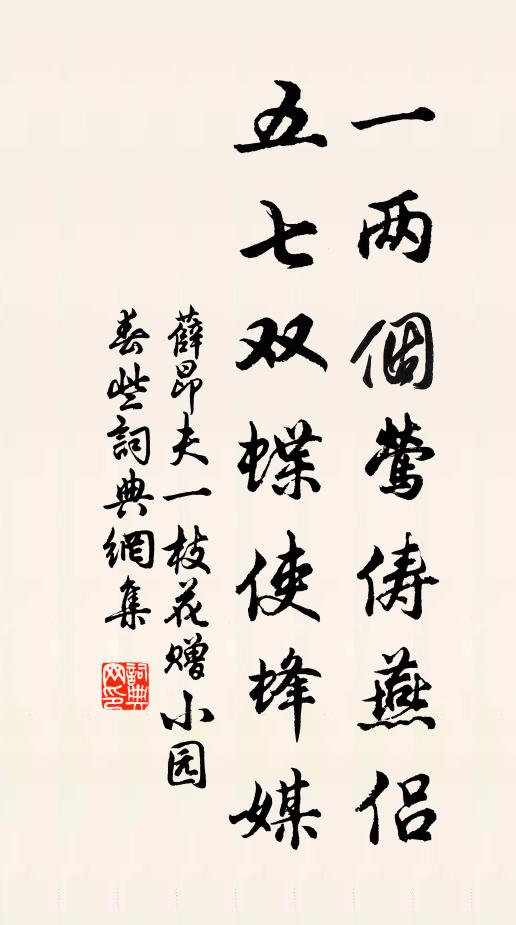 一两個鶯俦燕侣
五七双蝶使蜂媒
薛昂夫一枝花赠小园
春些詞典網集
詞典网印